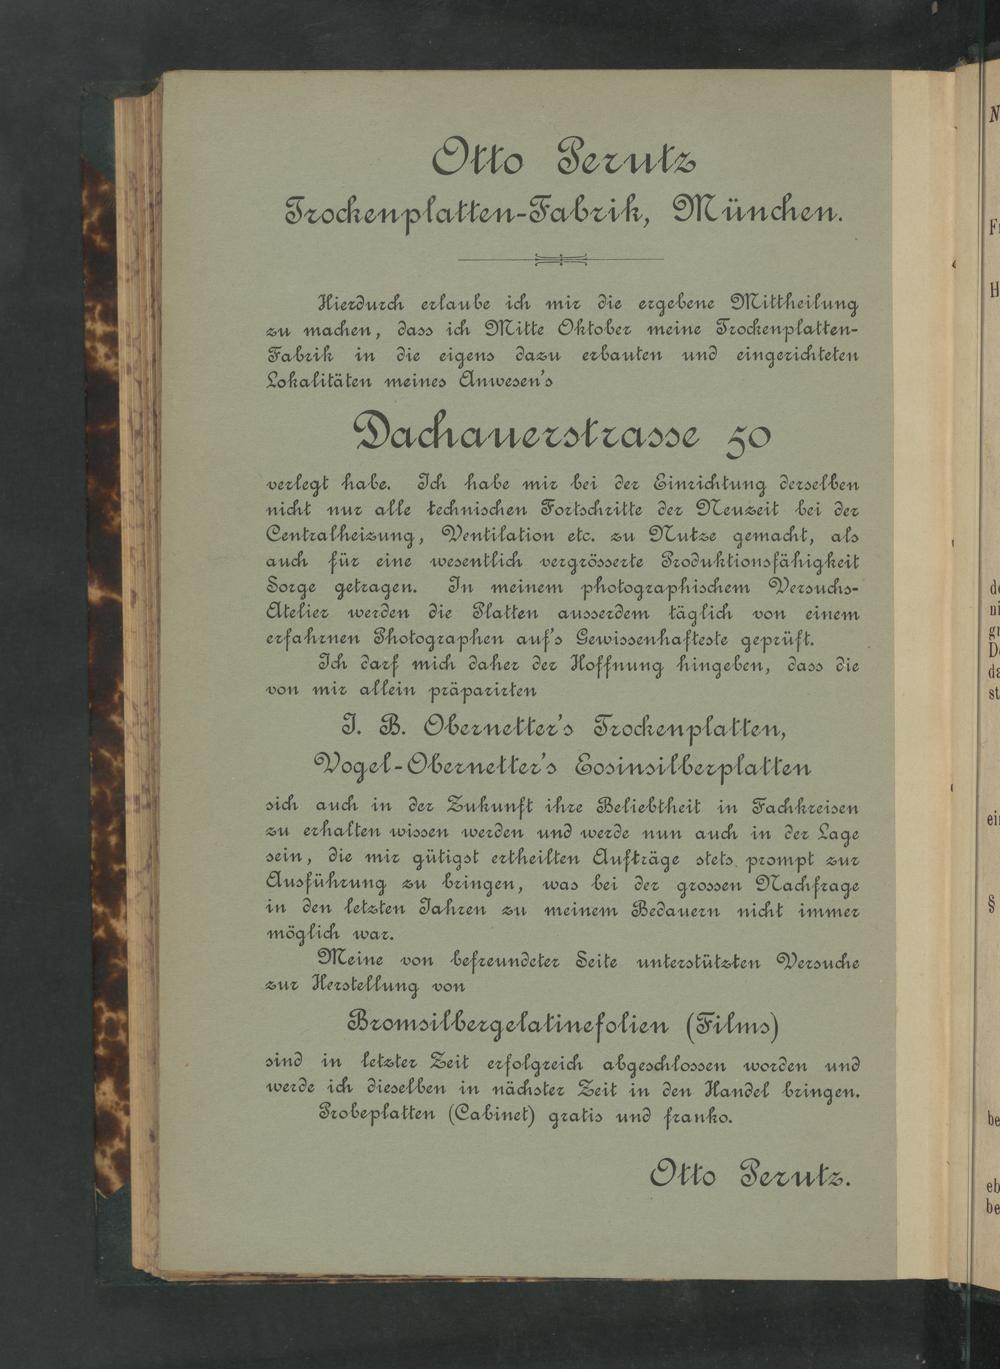 Otto Perutz
Trockenplatten-Fabrik, München.
Hierdurch erlaube ich mir die ergebene Mittheilung
zu machen, dass ich Mitte Oktober meine Trockenplatten-
Fabrik in die eigens dazu erbauten und eingerichteten
Lokalitäten meines Anwesen's
Dachauerstrasse 50
verlegt habe. Ich habe mir bei der Einrichtung derselben
nicht nur alle technischen Fortschritte der Neuzeit bei der
Centralheizung, Ventilation etc. zu Nutze gemacht, als
auch für eine wesentlich vergrösserte Produktionsfähigkeit
Sorge getragen. In meinem photographischem Versuchs-
Atelier werden die Platten ausserdem täglich von einem
erfahrnen Photographen auf's Gewissenhafteste geprüft.
Ich darf mich daher der Hoffnung hingeben, dass die
von mir allein präparirten
J. B. Obernetter's Trockenplatten,
Vogel-Obernetter's Eosinsilberplatten
sich auch in der Zukunft ihre Beliebtheit in Fachkreisen
zu erhalten wissen werden und werde nun auch in der Lage
sein, die mir gütigst ertheilten Aufträge stets prompt zur
Ausführung zu bringen, was bei der grossen Nachfrage
in den letzten Jahren zu meinem Bedauern nicht immer
möglich war.
Meine von befreundeter Seite unterstützten Versuche
zur Herstellung von
Bromsilbergelatinefolien (Films)
sind in letzter Zeit erfolgreich abgeschlossen worden und
werde ich dieselben in nächster Zeit in den Handel bringen.
Probeplatten (Cabinet) gratis und franko.
Otto Perutz.